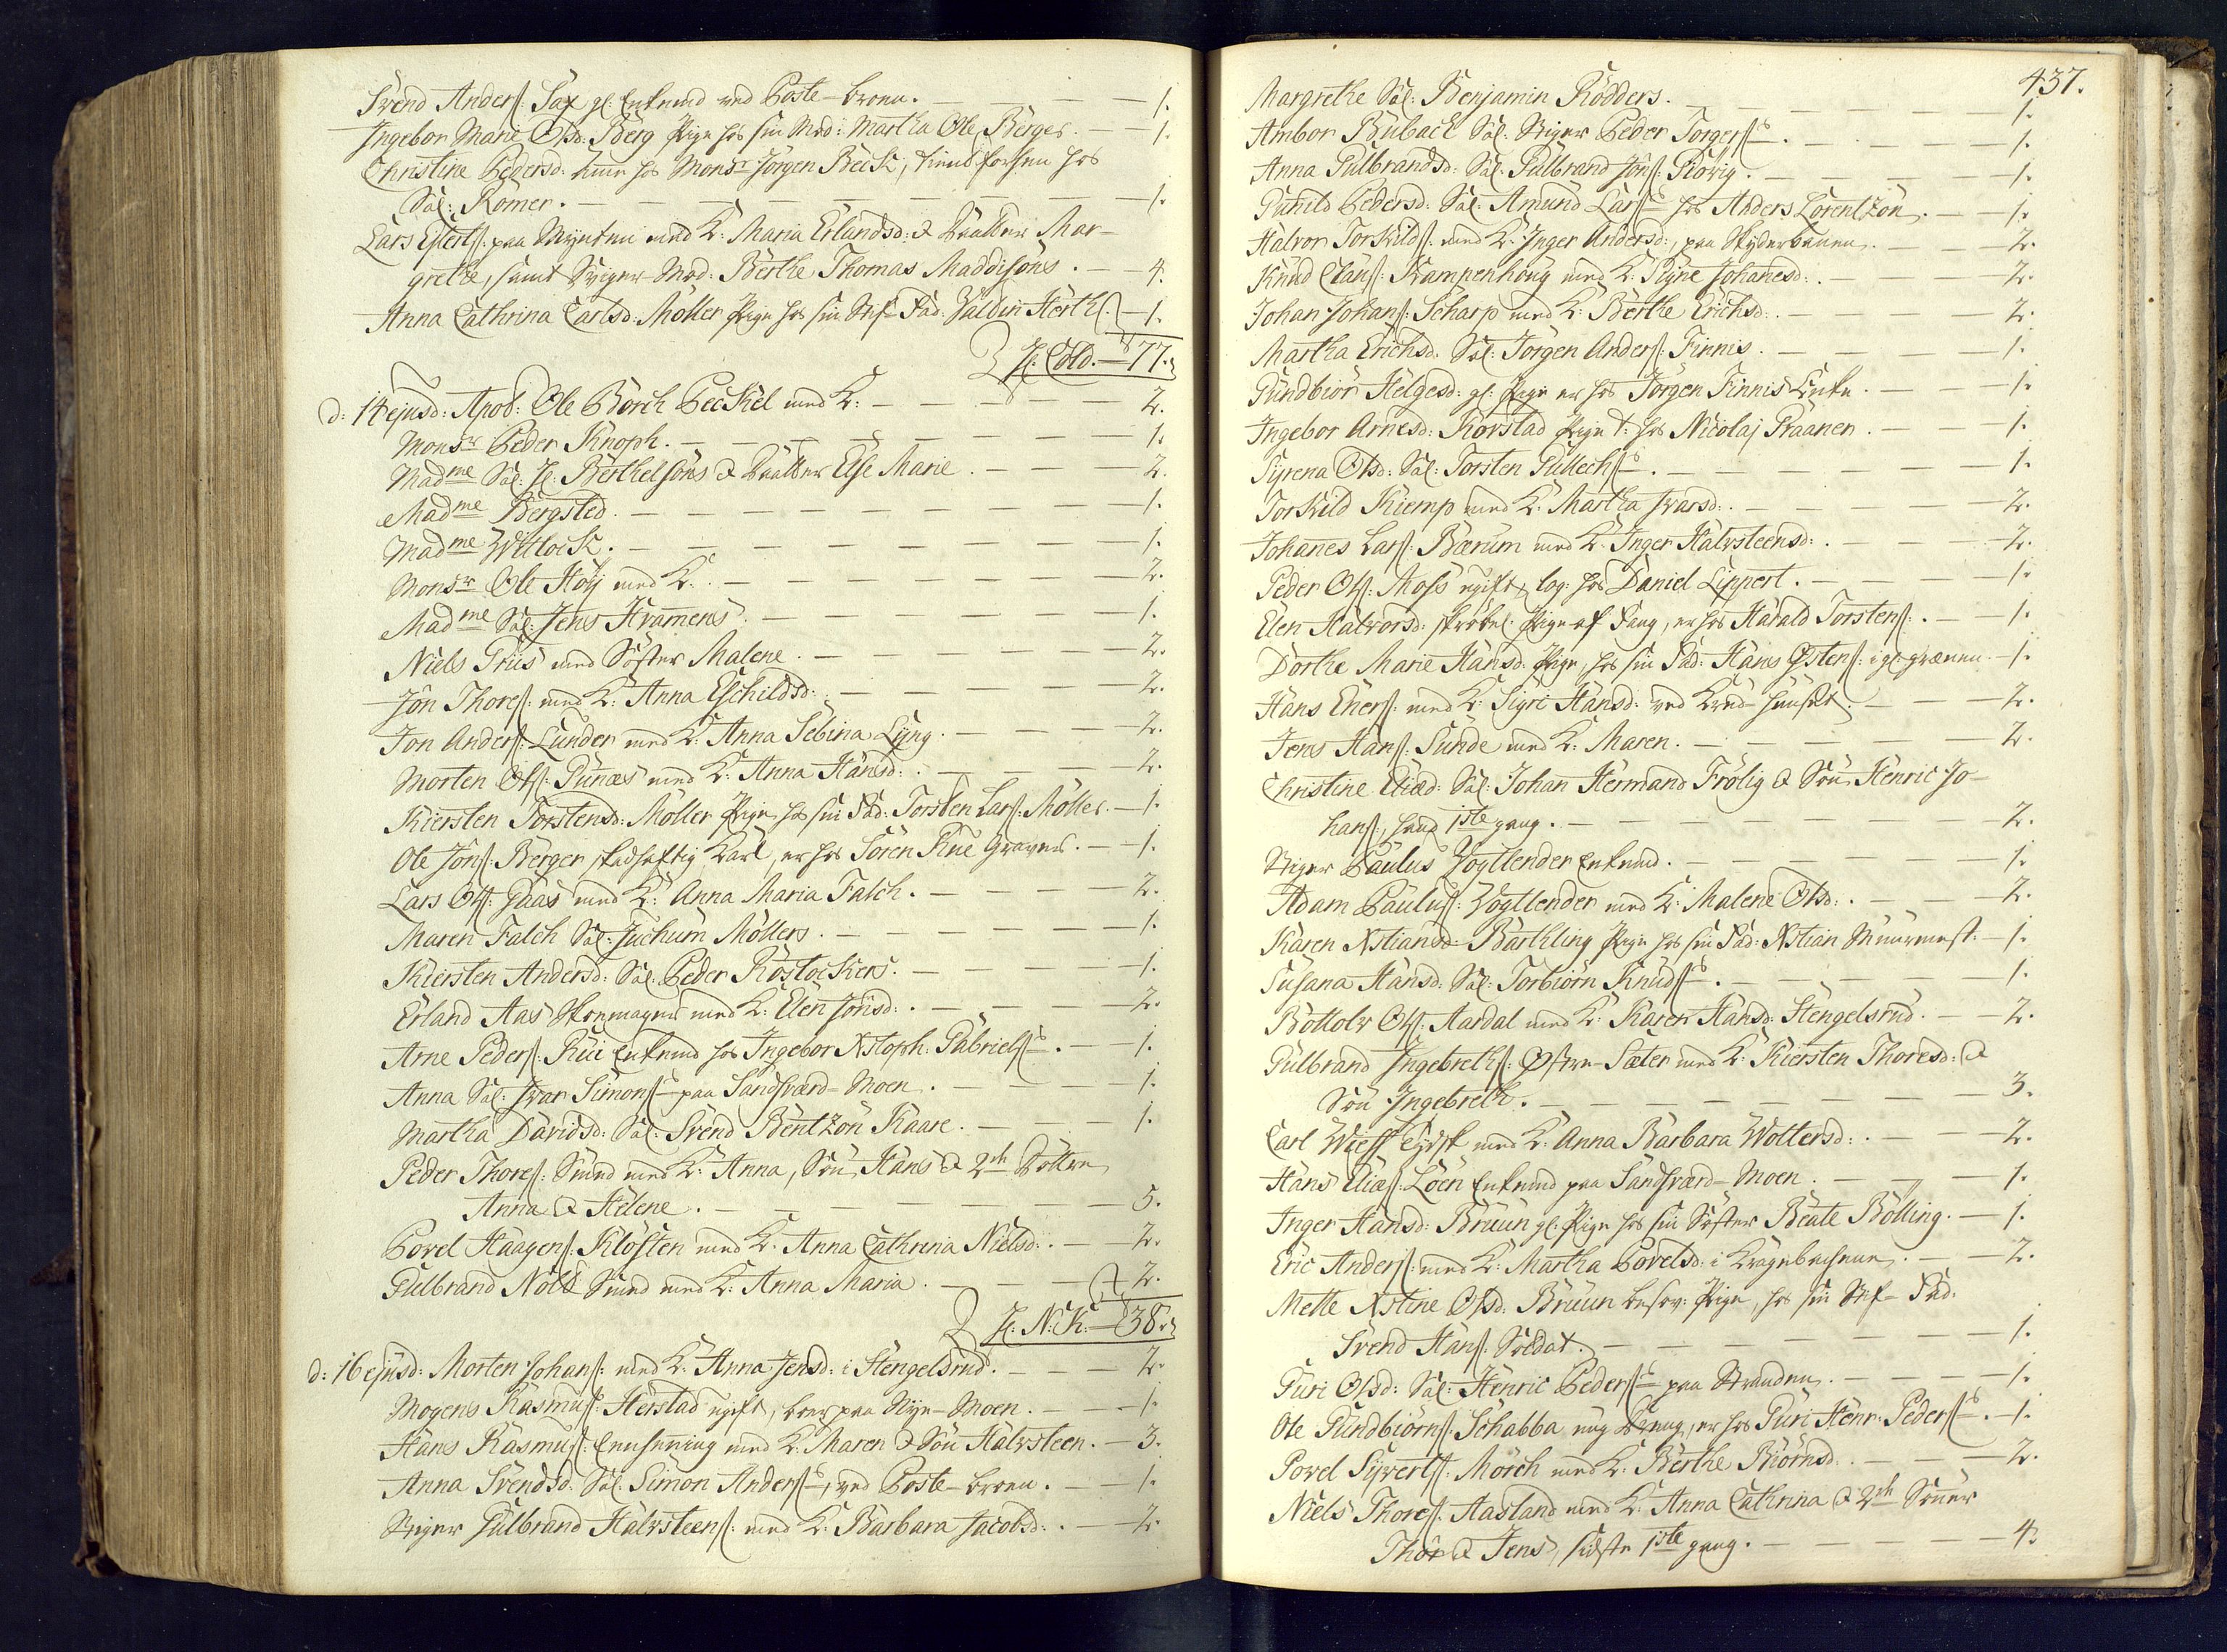 Svend Anders: Sax gl: Enkemd ved Poste-broen. — 1.
Ingebor Marie Olsd: Berg Pige hos sin Mod: Martha Ole Berges. — 1.
Christine Pedersd: hos Monsr Jörgen Beck, hos
Sal: Römer. — 1.
Lars paa Mynten med K: Maria Erlandsd: & Daatter Mar-
grethe, samt Sviger-Mod: Berthe Thomas Maddisöns. — 4.
Anna Cathrina Carlsd: Möller Pige hos sin Stif-Fad: Herth — 1.
H: Cold. — 77.
d: 14 ejusd: Apoth: Ole Borch Peckel med K: — 2.
Monsr Peder Knoph. — 1.
Madme Sal: H: Berthelsöns & Daatter Else Marie. — 2.
Madme Bergsted. — 1.
Madme Witlock. — 1.
Monsr Ole Höij med K: — 2.
Madme Sal: Jens Kramers. — 1.
Niels Friis med Söster Malene. — 2.
Jön Thores: med K: Anna Eschildsd: — 2.
Jon Anders: Lunder med K: Anna Sebina Lyng. — 2.
Morten Ols: Gunæs med K: Anna Hansd: — 2.
Kiersten Torstensd: Möller Pige hos sin Fad: Torsten Lars: Möller. — 1.
Ole Jöns: Berger Karl, er hos Sören Rue Graver. — 1.
Lars Ols: Gaas med K: Anna Maria Falch. — 2.
Maren Falch Sal: Juchum Möllers. — 1.
Kiersten Andersd: Sal: Peder Rostockers. — 1.
Erland Aas Skoemager med K: Elen Jonsd: — 2.
Arne Peders: Rüi Enkemd hos Ingebor Xstoph: Gabriels: — 1.
Anna Sal: Ivar Simons: paa Sandsværd-Moen. — 1.
Martha Davidsd: Sal: Svend Bentzön Kaare. — 1.
Peder Thores: Smed med K: Anna, Sön Hans & 2de Döttre
Anna & Helene. — 5.
Povel Haagens: Klösten med K: Anna Cathrina Nielsd: — 2.
Gulbrand Nold Smed med K: Anna Maria. — 2.
H: N: K: — 38.
d: 16 ejusd: Morten Johans: med K: Anna Jensd: i Hengelsrud. — 2.
Mogens Rasmus: Herstad ugift, boer paa Nye-Moen. — 1.
Hans Rasmus: med K: Maren & Sön Halvsteen. — 3.
Anna Svendsd: Sal: Simon Anders:, ved Poste-broen. — 1.
Stiger Gulbrand Halvsteens: med K: Barbara Jacobsd: — 2.
437.
Margrethe Sal: Benjamin Rödders. — 1.
Ambor Bubach Sal: Stiger Peder Torgers: — 1.
Anna Gulbrandsd: Sal: Gulbrand Jöns: Rovig. — 1.
Gunild Pedersd: Sal: Amund Lars: hos Anders Lorentzön. — 1.
Halvor Torkilds: med K: Inger Andersd:, paa Skyderbanen. — 2.
Knud Claus: Kampenhoug med K: Signe Johanesd: — 2.
Johan Johans: Scharp med K: Berthe Erichsd: — 2.
Martha Erichsd: Sal: Jörgen Anders: Finnis. — 1.
Gundbiör Helgesd: gl: Pige er hos Jörgen Finnis Enke. — 1.
Ingebor Arnesd: Korstad Pige t: hos Nicolaj Praanen. — 1.
Syrena Olsd: Sal: Torsten Gullechs: — 1.
Torkild Kiemp med K: Martha Ivarsd: — 2.
Johanes Lars: Bærum med K: Inger Halvsteensd: — 2.
Peder Ols: Moss ugift, log: hos Daniel Lippert. — 1.
Elen Halvorsd: skröbel: Pige af Fang, er hos Harald Torstens: — 1.
Dorthe Marie Hansd: Pige, hos sin Fad: Hans Östens: i gl: — 1.
Hans Ehers: med K: Sigri Hansd: ved — 2.
Jens Hans: Sunde med K: Maren. — 2.
Christine Eliæd: Sal: Johan Hermand Frölig & Sön Henric Jo-
hans:, hand 1ste gang. — 2.
Stiger Paulus Vogtlender Enkemd. — 1.
Adam Paulus: Vogtlender med K: Malene Olsd: — 2.
Karen Xstiansd: Barthling Pige hos sin Fad: Xstian Muurmest: — 1.
Susana Hansd: Sal: Torbiörn Knuds: — 1.
Bottolv Ols: Aardal med K: Karen Hansd: Hengelsrud. — 2.
Gulbrand Ingebreths: Östre-Sæter med K: Kiersten Thoresd: &
Sön Ingebreth. — 3.
Carl Wieff Tydsk med K: Anna Barbara Woltersd: — 2.
Hans Elias: Löen Enkemd paa Sandsværd-Moen. — 1.
Inger Hansd: Bruun gl: Pige hos sin Söster Beate Bölling. — 1.
Eric Anders: med K: Martha Povelsd: i — 2.
Mette Xstine Olsd: Bruun besov: Pige, hos sin Stif-Fad:
Svend Hans: Soldat. — 1.
Guri Olsd: Sal: Henric Peders: paa Stranden. — 1.
Ole Gundbiörns: Schabba ung Dreng, er hos Guri Henr: Peders: — 1.
Povel Syverts: Mörch med K: Berthe Biörnsd: — 2.
Niels Thores: Aasland med K: Anna Cathrina & 2de Sönner
Thor & Jens, sidste 1ste gang. — 4.